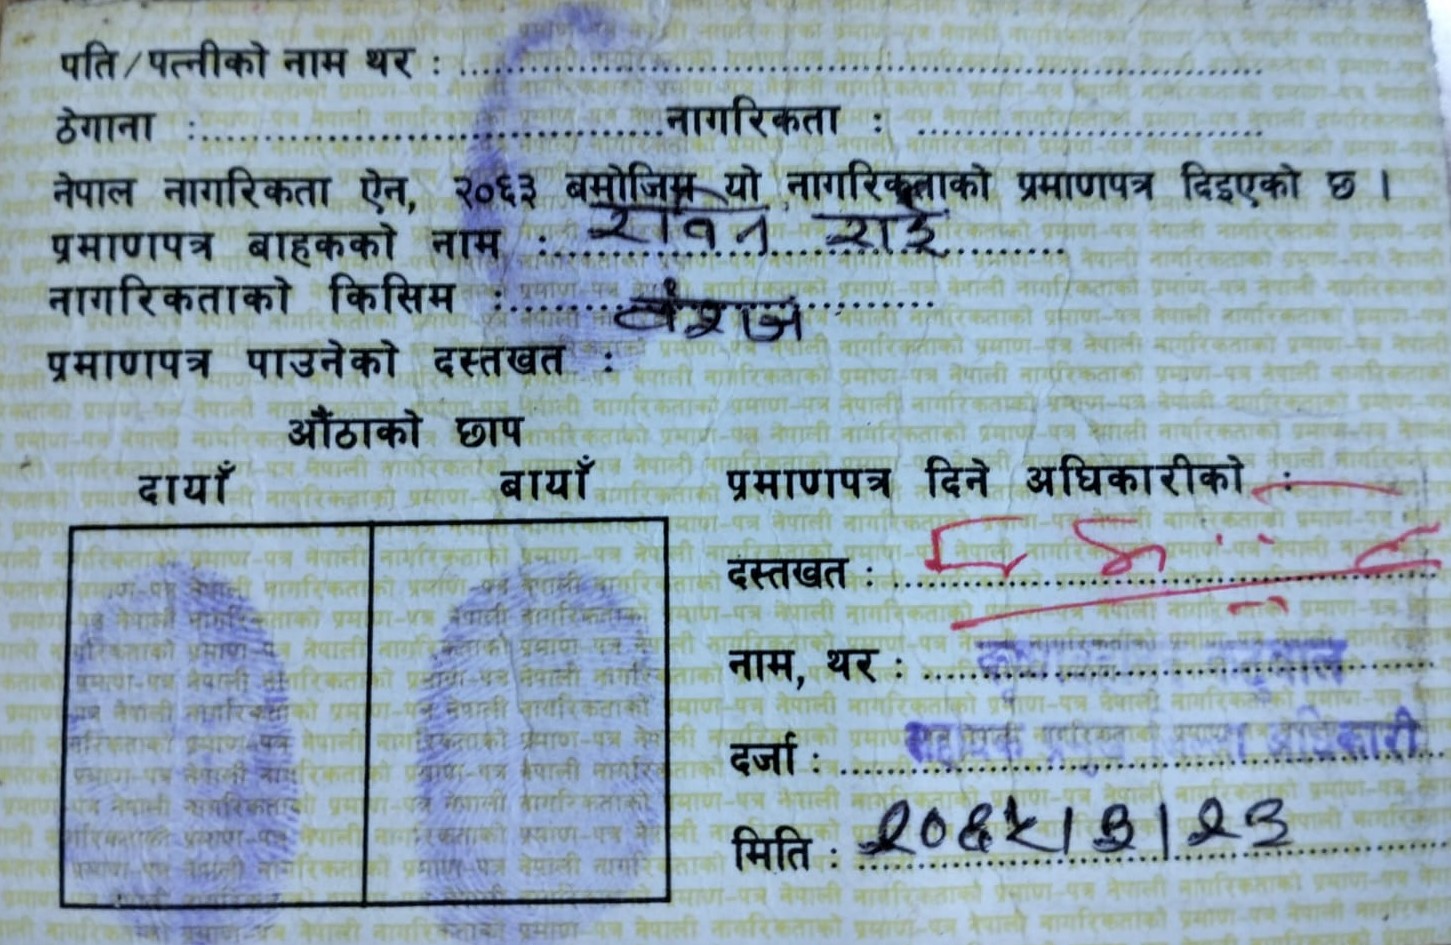 पति/पत्नीको नाम थर : ........................................
ठेगाना :........................................नागरिकता : ..............................
नेपाल नागरिकता ऐन, २०६३ बमोजिम यो नागरिकताको प्रमाणपत्र दिइएको छ ।
प्रमाणपत्र बाहकको नाम : राई
नागरिकताको किसिम : वंशज
प्रमाणपत्र पाउनेको दस्तखत :
औंठाको छाप
दायाँ बायाँ
प्रमाणपत्र दिने अधिकारीको :
दस्तखत :
नाम, थर :
दर्जा : सहायक प्रमुख जिल्ला अधिकारी
मिति :